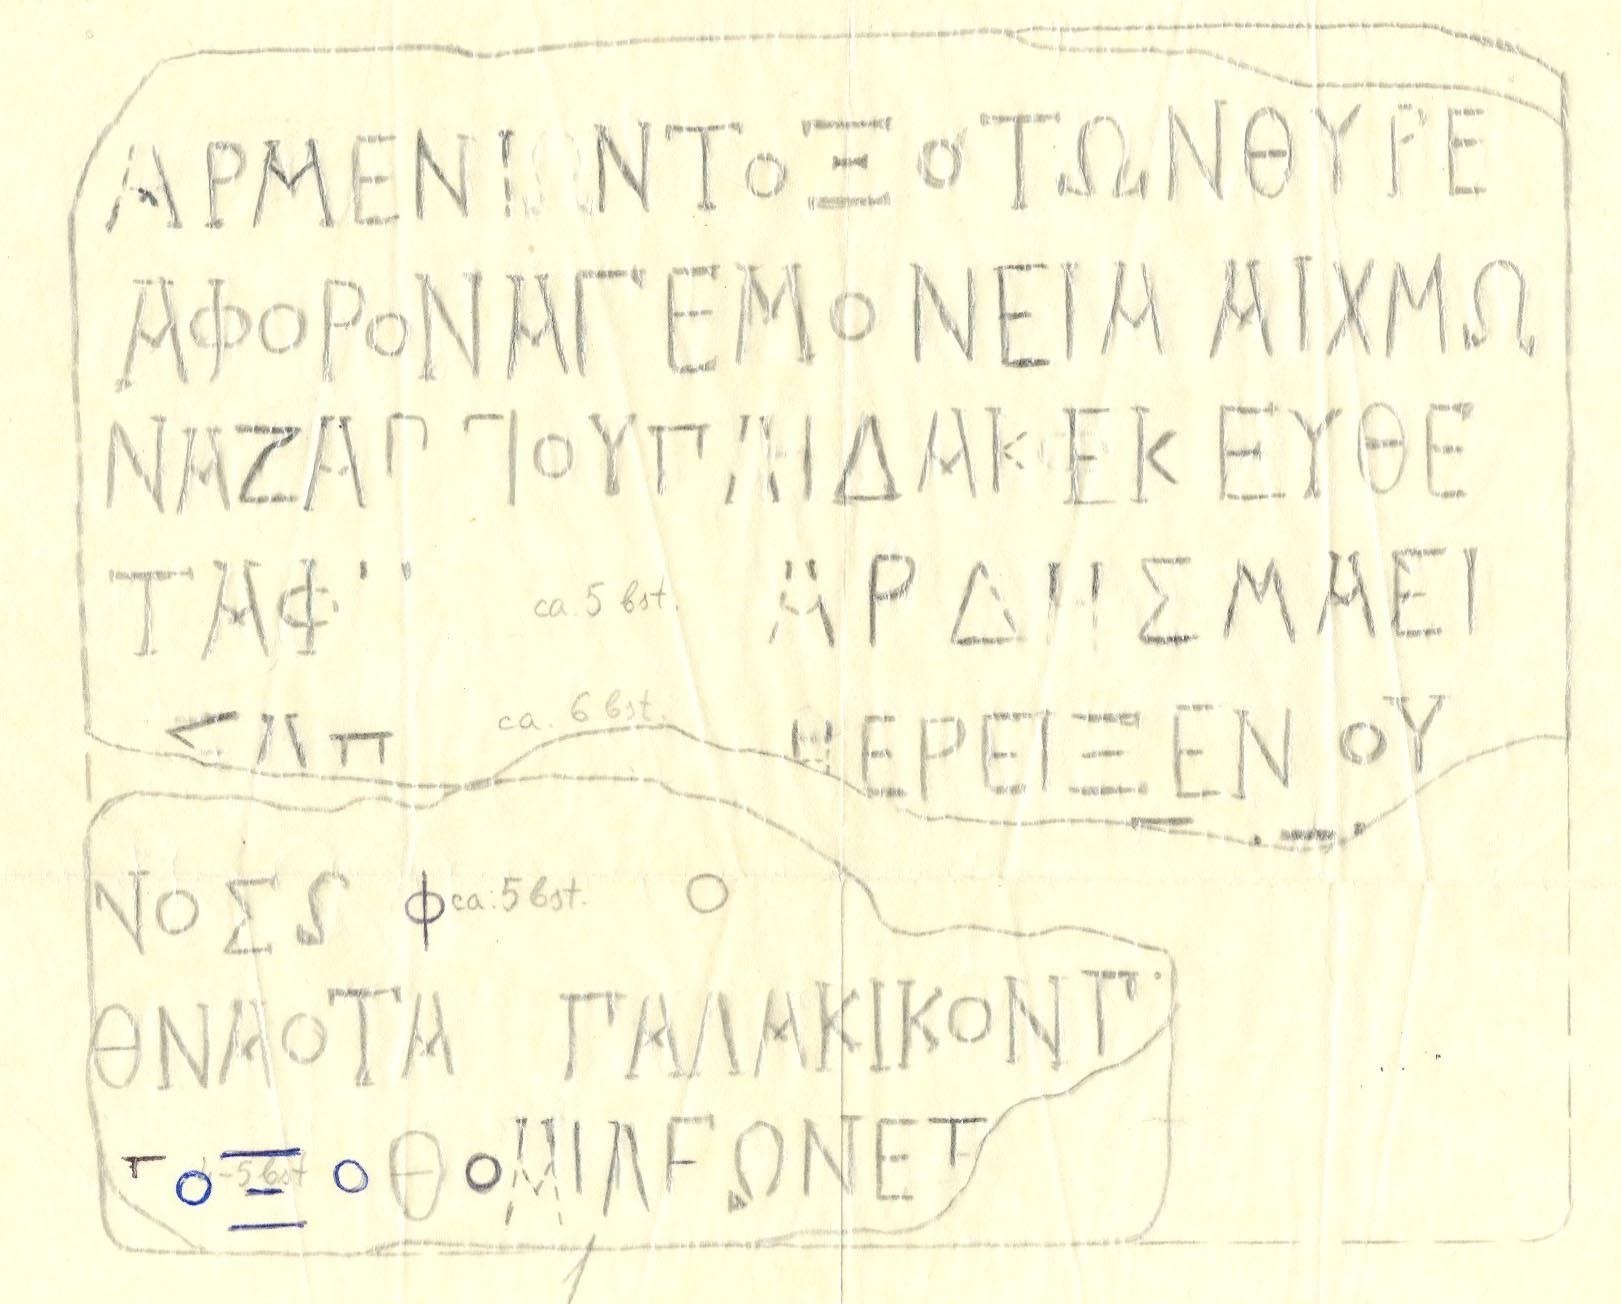 ΑΡΜΕΝΙΩΝΤΟΞΟΤΩΝΘΥΡΕ
ΑΦΟΡΟΝΑΓΕΜΟΝΕΙΑ ΑΙΧΜΩ
ΝΑΖΑΓ ΟΥΠ ΙΔΑΚΕΚΕΥΘΕ
ΤΑΦ ca. 5 bst. ΑΡΔΗΣΜΑΕΙ
ca. 6 bst. ΘΕΡΕΙΞΕΝ ΟΥ
ΝΟΣ Φ ca. 5 bst. Ο
ΘΝΑΟΤΑ ΓΑΛΑΚΙΚΟΝΤ
ΤΟΞΟΘΟΜΙΛΕΩΝΕΤ